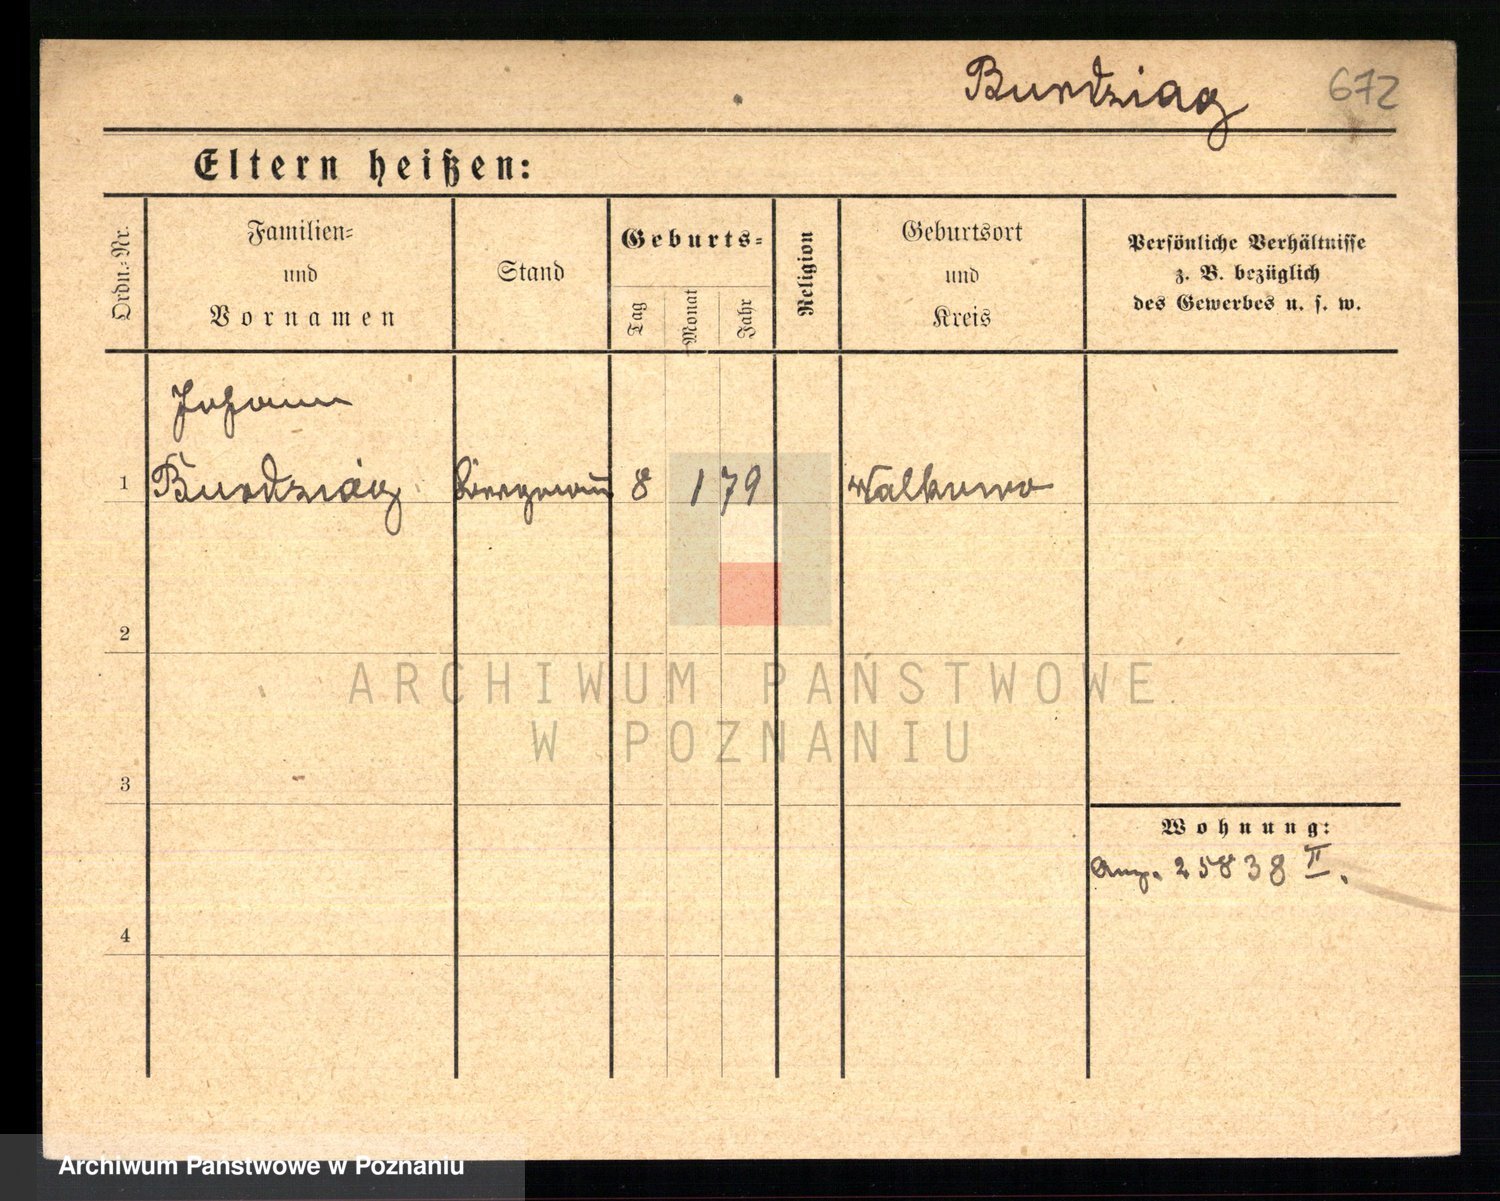 Burdziag 672
Eltern heißen:
Ordn.-Nr.
Familien-
und
Vornamen
Stand
Geburts-
Tag
Monat
Jahr
Religion
Geburtsort
und
Kreis
Persönliche Verhältnisse
z. B. bezüglich
des Gewerbes u. s. w.
Johann
1 Burdziag Bergmann 8 1 79 Walkowo
2
ARCHIWUM PAŃSTWOWE
W POZNANIU
3
Wohnung:
Anz. 25838 II.
4
Archiwum Państwowe w Poznaniu